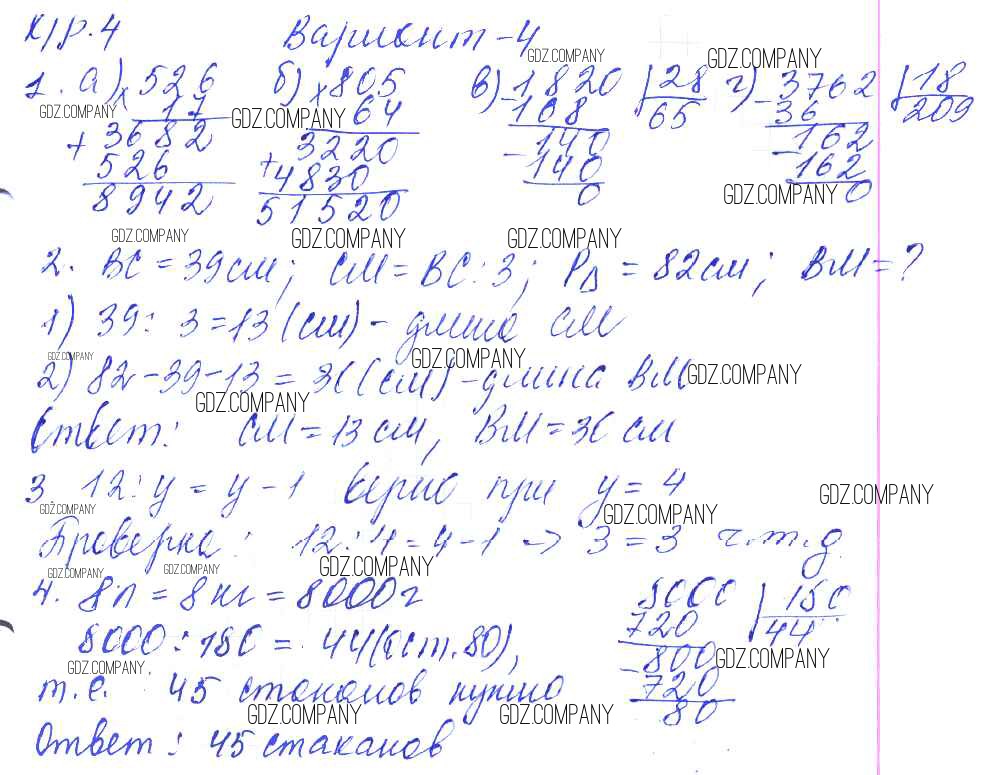 К/р. 4 Вариант-4
1. а) × 526 б) × 805 в) 1820 | 28 г) 3762 | 18
17 64 - 168 65 - 36 209
+ 3682 3220 140 162
526 + 4830 - 140 - 162
8942 51520 0 0
2. ВС = 39см; СМ = ВС : 3; PΔ = 82см; ВМ = ?
1) 39 : 3 = 13 (см) - длина СМ
2) 82 - 39 - 13 = 30 (см) - длина ВМ
Ответ: СМ = 13 см, ВМ = 30 см
3. 12 : у = у - 1 верно при у = 4
Проверка: 12 : 4 = 4 - 1 -> 3 = 3 ч.т.д.
4. 8л = 8кг = 8000г 8000 | 180
8000 : 180 = 44(ост. 80), 720 44
т.е. 45 стаканов нужно - 800
720
80
Ответ: 45 стаканов
GDZ.COMPANY